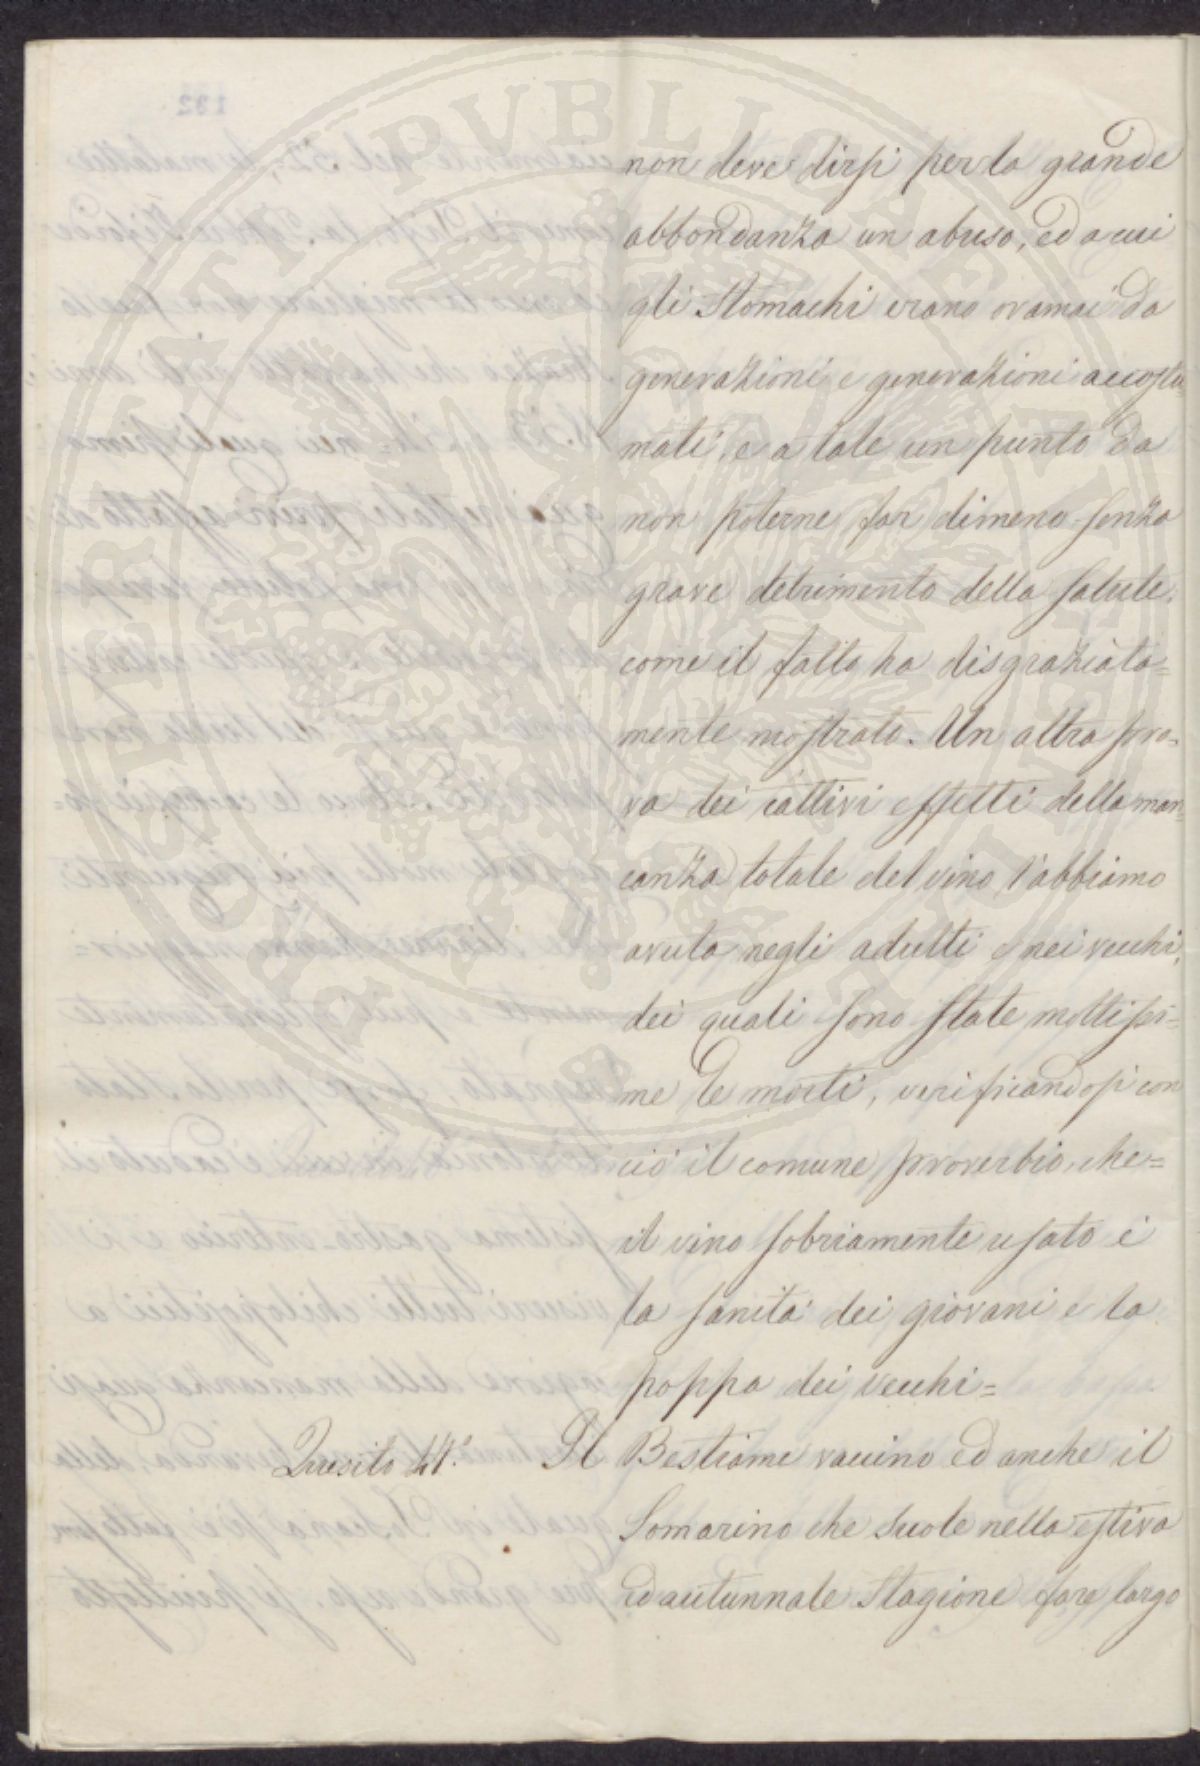 non deve dirsi per la grande
abbondanza un abuso, ed a cui
gli Stomachi erano oramai da
generazioni e generazioni accostu=
mati, e a tale un punto da
non poterne far dimeno senza
grave detrimento della salute,
come il fatto ha disgraziata=
mente mostrato. Un altra pro=
va dei cattivi effetti della man=
canza totale del vino l'abbiamo
avuta negli adulti e nei vecchi,
dei quali sono state moltissi=
me le morti, verificandosi con
ciò il comune proverbio, che=
il vino sobriamente usato è
la sanità dei giovani e la
poppa dei vecchi=
Quesito 4.º Il Bestiame vaccino ed anche il
Somarino che suole nella estiva
ed autunnale Stagione fare largo